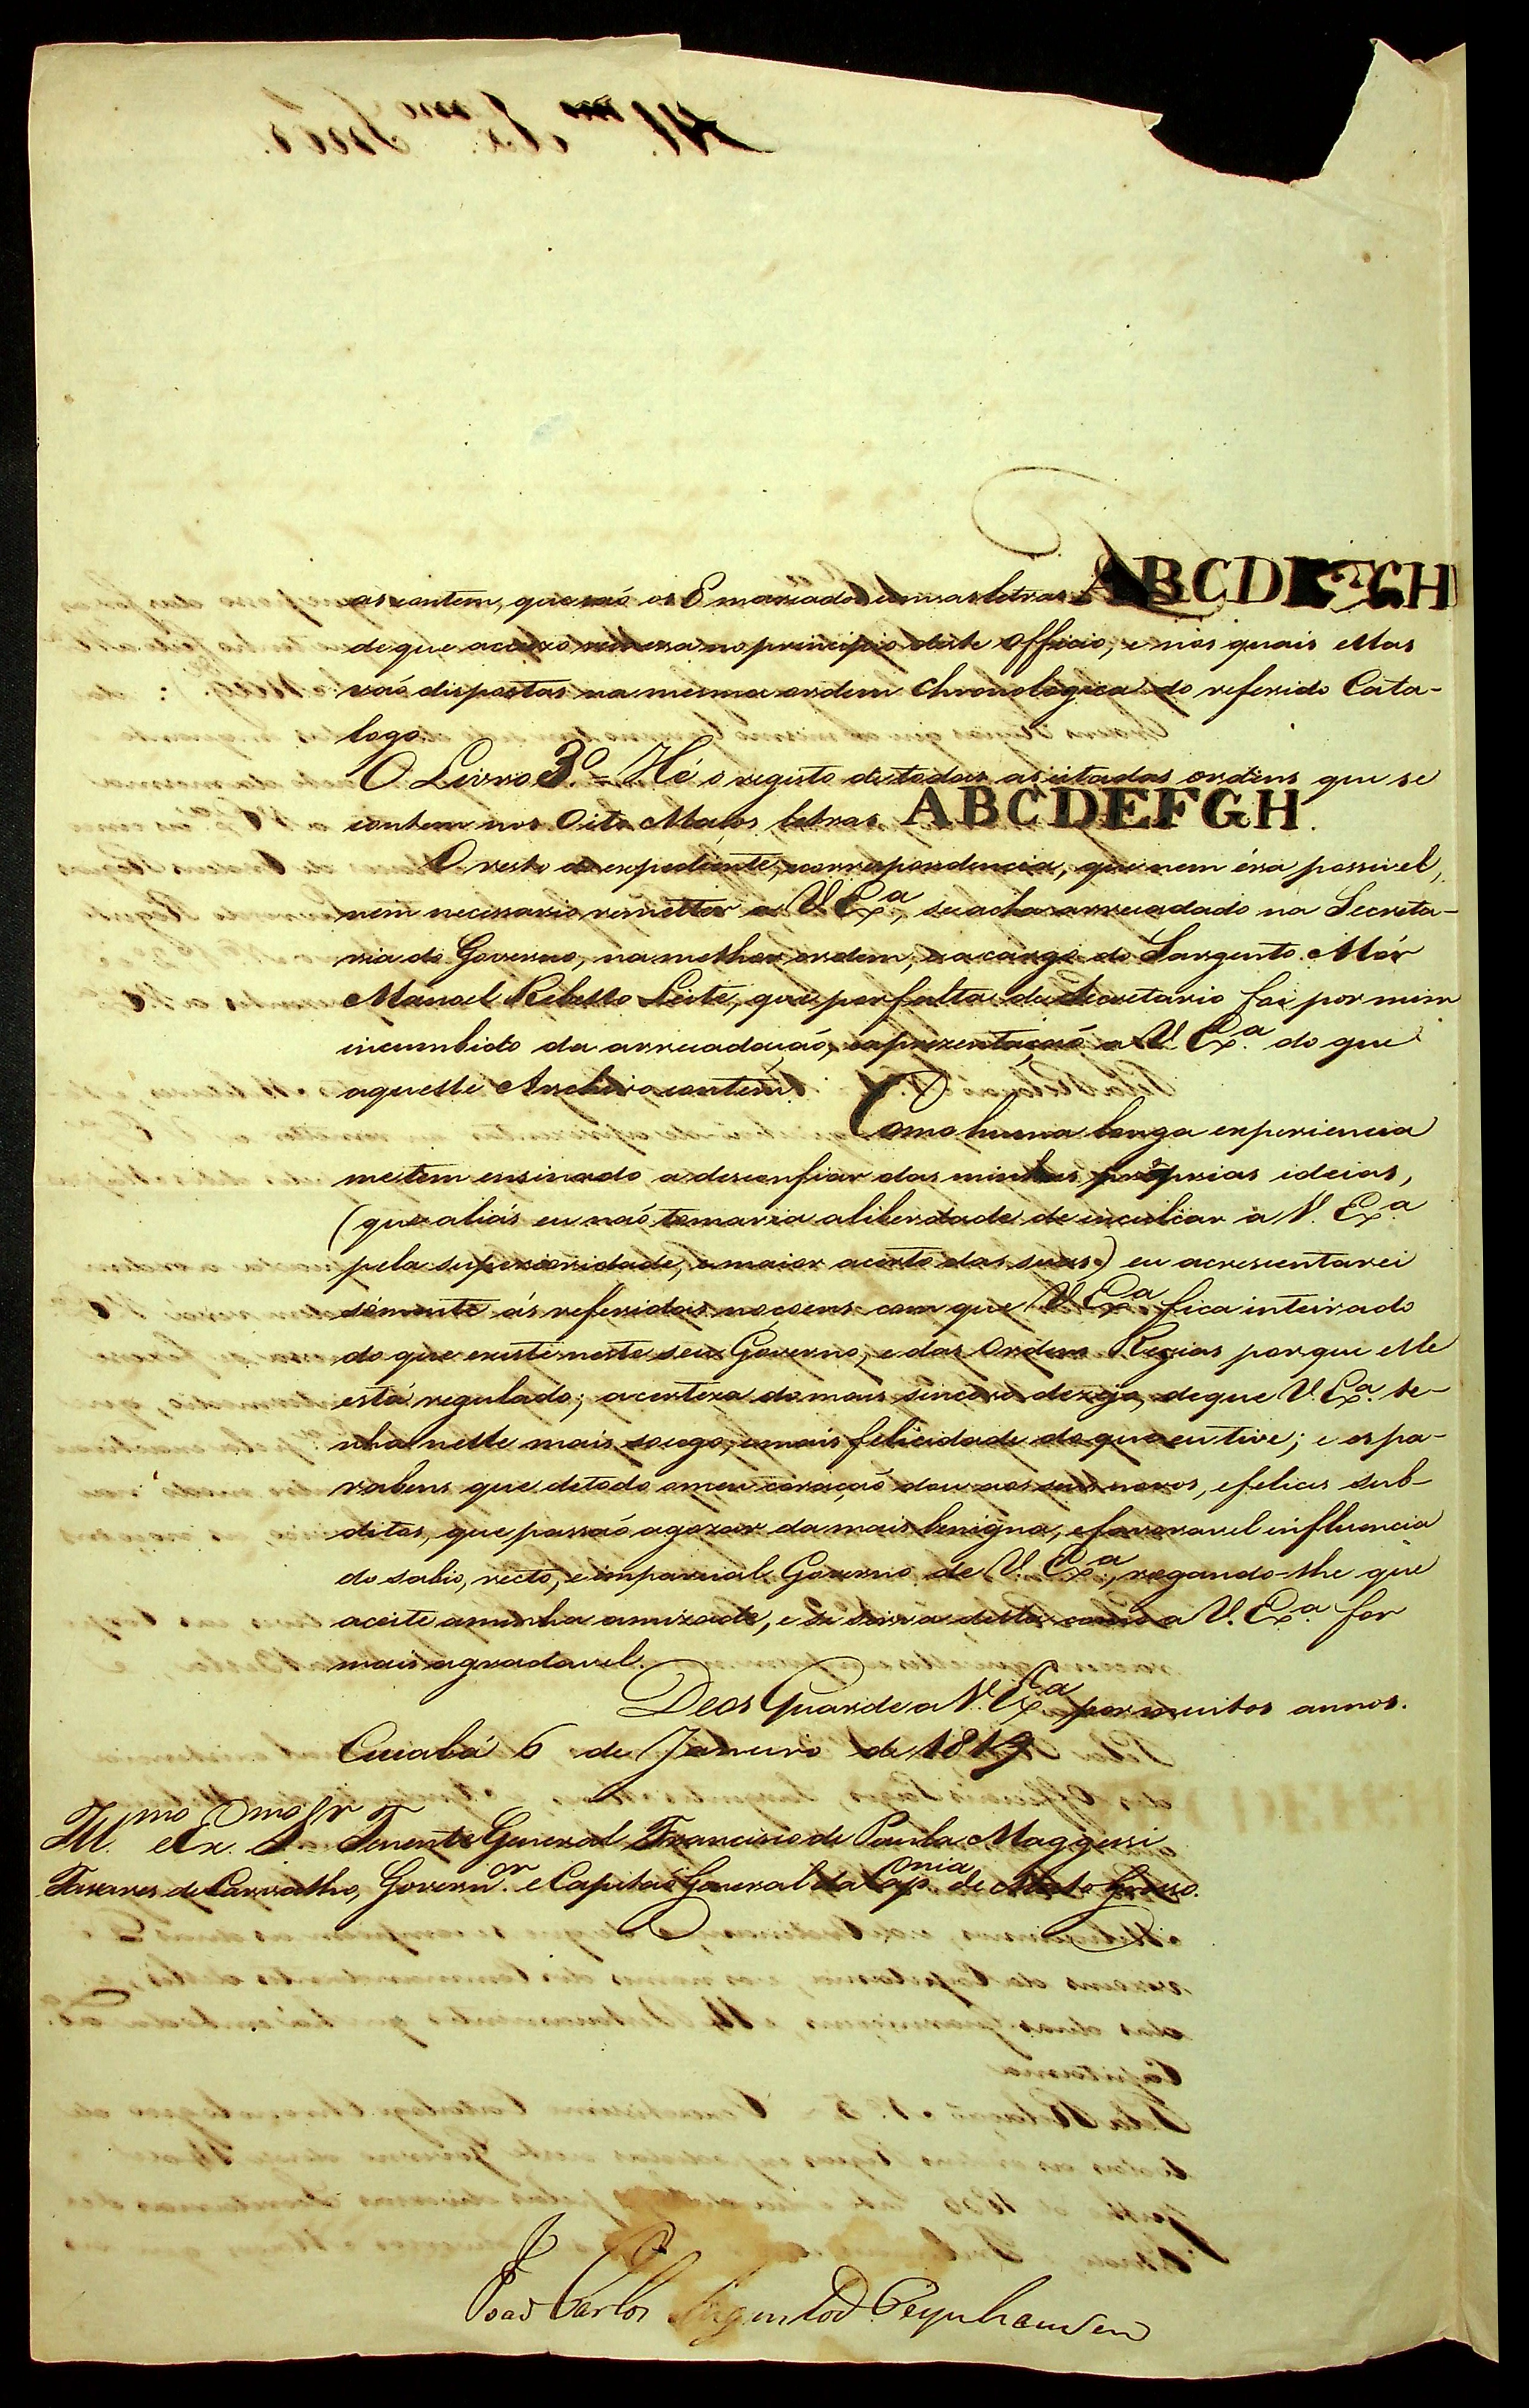 as contem, que saó os 8 marcados com as letras ABCDEFGH
de que accuzo remessa no principio deste officio, e nos quais ellas
vaó dispostas na mesma ordem Chronologica do referido Cata-
logo.
O Livro 3º = Hé o registo de todas as citadas ordens que se
contem nos Oito Maços letras ABCDEFGH.
O resto do expediente, e correspondencia, que nem éra possivel,
nem necessario remetter a V. Exª, se acha arrecadado na Secreta-
ria do Governo, na melhor ordem, e a cargo do Sargento Mór
Manoel Rebello Leite, que por falta de Secretario foi por mim
incumbido da arrecadaçaó, e aprezentaçaó a V. Exª. do que
aquelle Archivo contem.
Como huma longa experiencia
me tem ensinado a desconfiar das minhas proprias ideias,
(que aliás eu naó tomaria a liberdade de inculcar a V. Exª.
pela superioridade, e maior acerto das suas) eu acrescentarei
sómente ás referidas noçoens com que V. Exª. fica inteirado
do que existe neste seu Governo, e das Ordens Regias por que elle
está regulado; a certeza do mais sincero dezejo, de que V. Exª. te-
nha nelle mais socego, e mais felicidade do que eu tive; e os pa-
rabens que de todo o meu coraçaó dou aos seus novos, e felices sub-
ditos, que passaó a gozar da mais benigna, e favoravel influencia
do sabio, recto, e imparcial Governo de V. Exª., rogando-lhe que
aceite a minha amizade, e se sirva desta como a V. Exª. for
mais agradavel.
Deos Guarde a V. Exª por muitos annos.
Cuiabá 6 de Janeiro de 1819
Ill.mo e Ex.mo Sr. Tenente General Francisco de Paula Maggessi
Tavares de Carvalho, Govern.r e Capitaó General da Cap.nia de Mato Grosso.
Joaó Carlos Augusto d'Oeynhausen